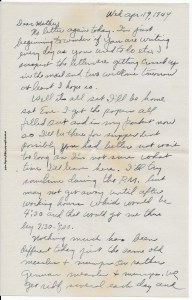 Wed. Apr. 19, 1944
Dear Mother,
No letter again today. I'm just
beginning to wonder if you are writing
every day as you used to do still. I
suspect the letters are getting
in the mail and two will come tomorrow
at least I hope so.
Well I'm all set I'll be home
Sat. Eve. I got the papers all
filled out and in my pocket now
so I'll be there for supper but
possibly you had better not wait
too long as I'm not sure what
time I'll leave here. I'll try
sometime during the P.M. but
may not get away until after
working hours which would be
4:00 and that would get me there
by 7:30-8:00.
Nothing much has been
different today just the same old
measles &
German measles & mumps.
several each day and